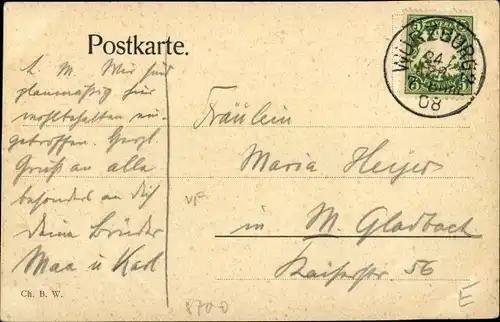 Postkarte.
L. M. Wir sind
planmäßig hier
wohlbehalten ein-
getroffen. Herzl.
Gruß an alle
besonders an dich
deine Brüder
Max u Karl
Ch. B. W.
BAYERN
WÜRZBURG 2
24
08
Fräulein
Maria Heyer
in M. Gladbach
Kaiserstr 56
VF
8700
E